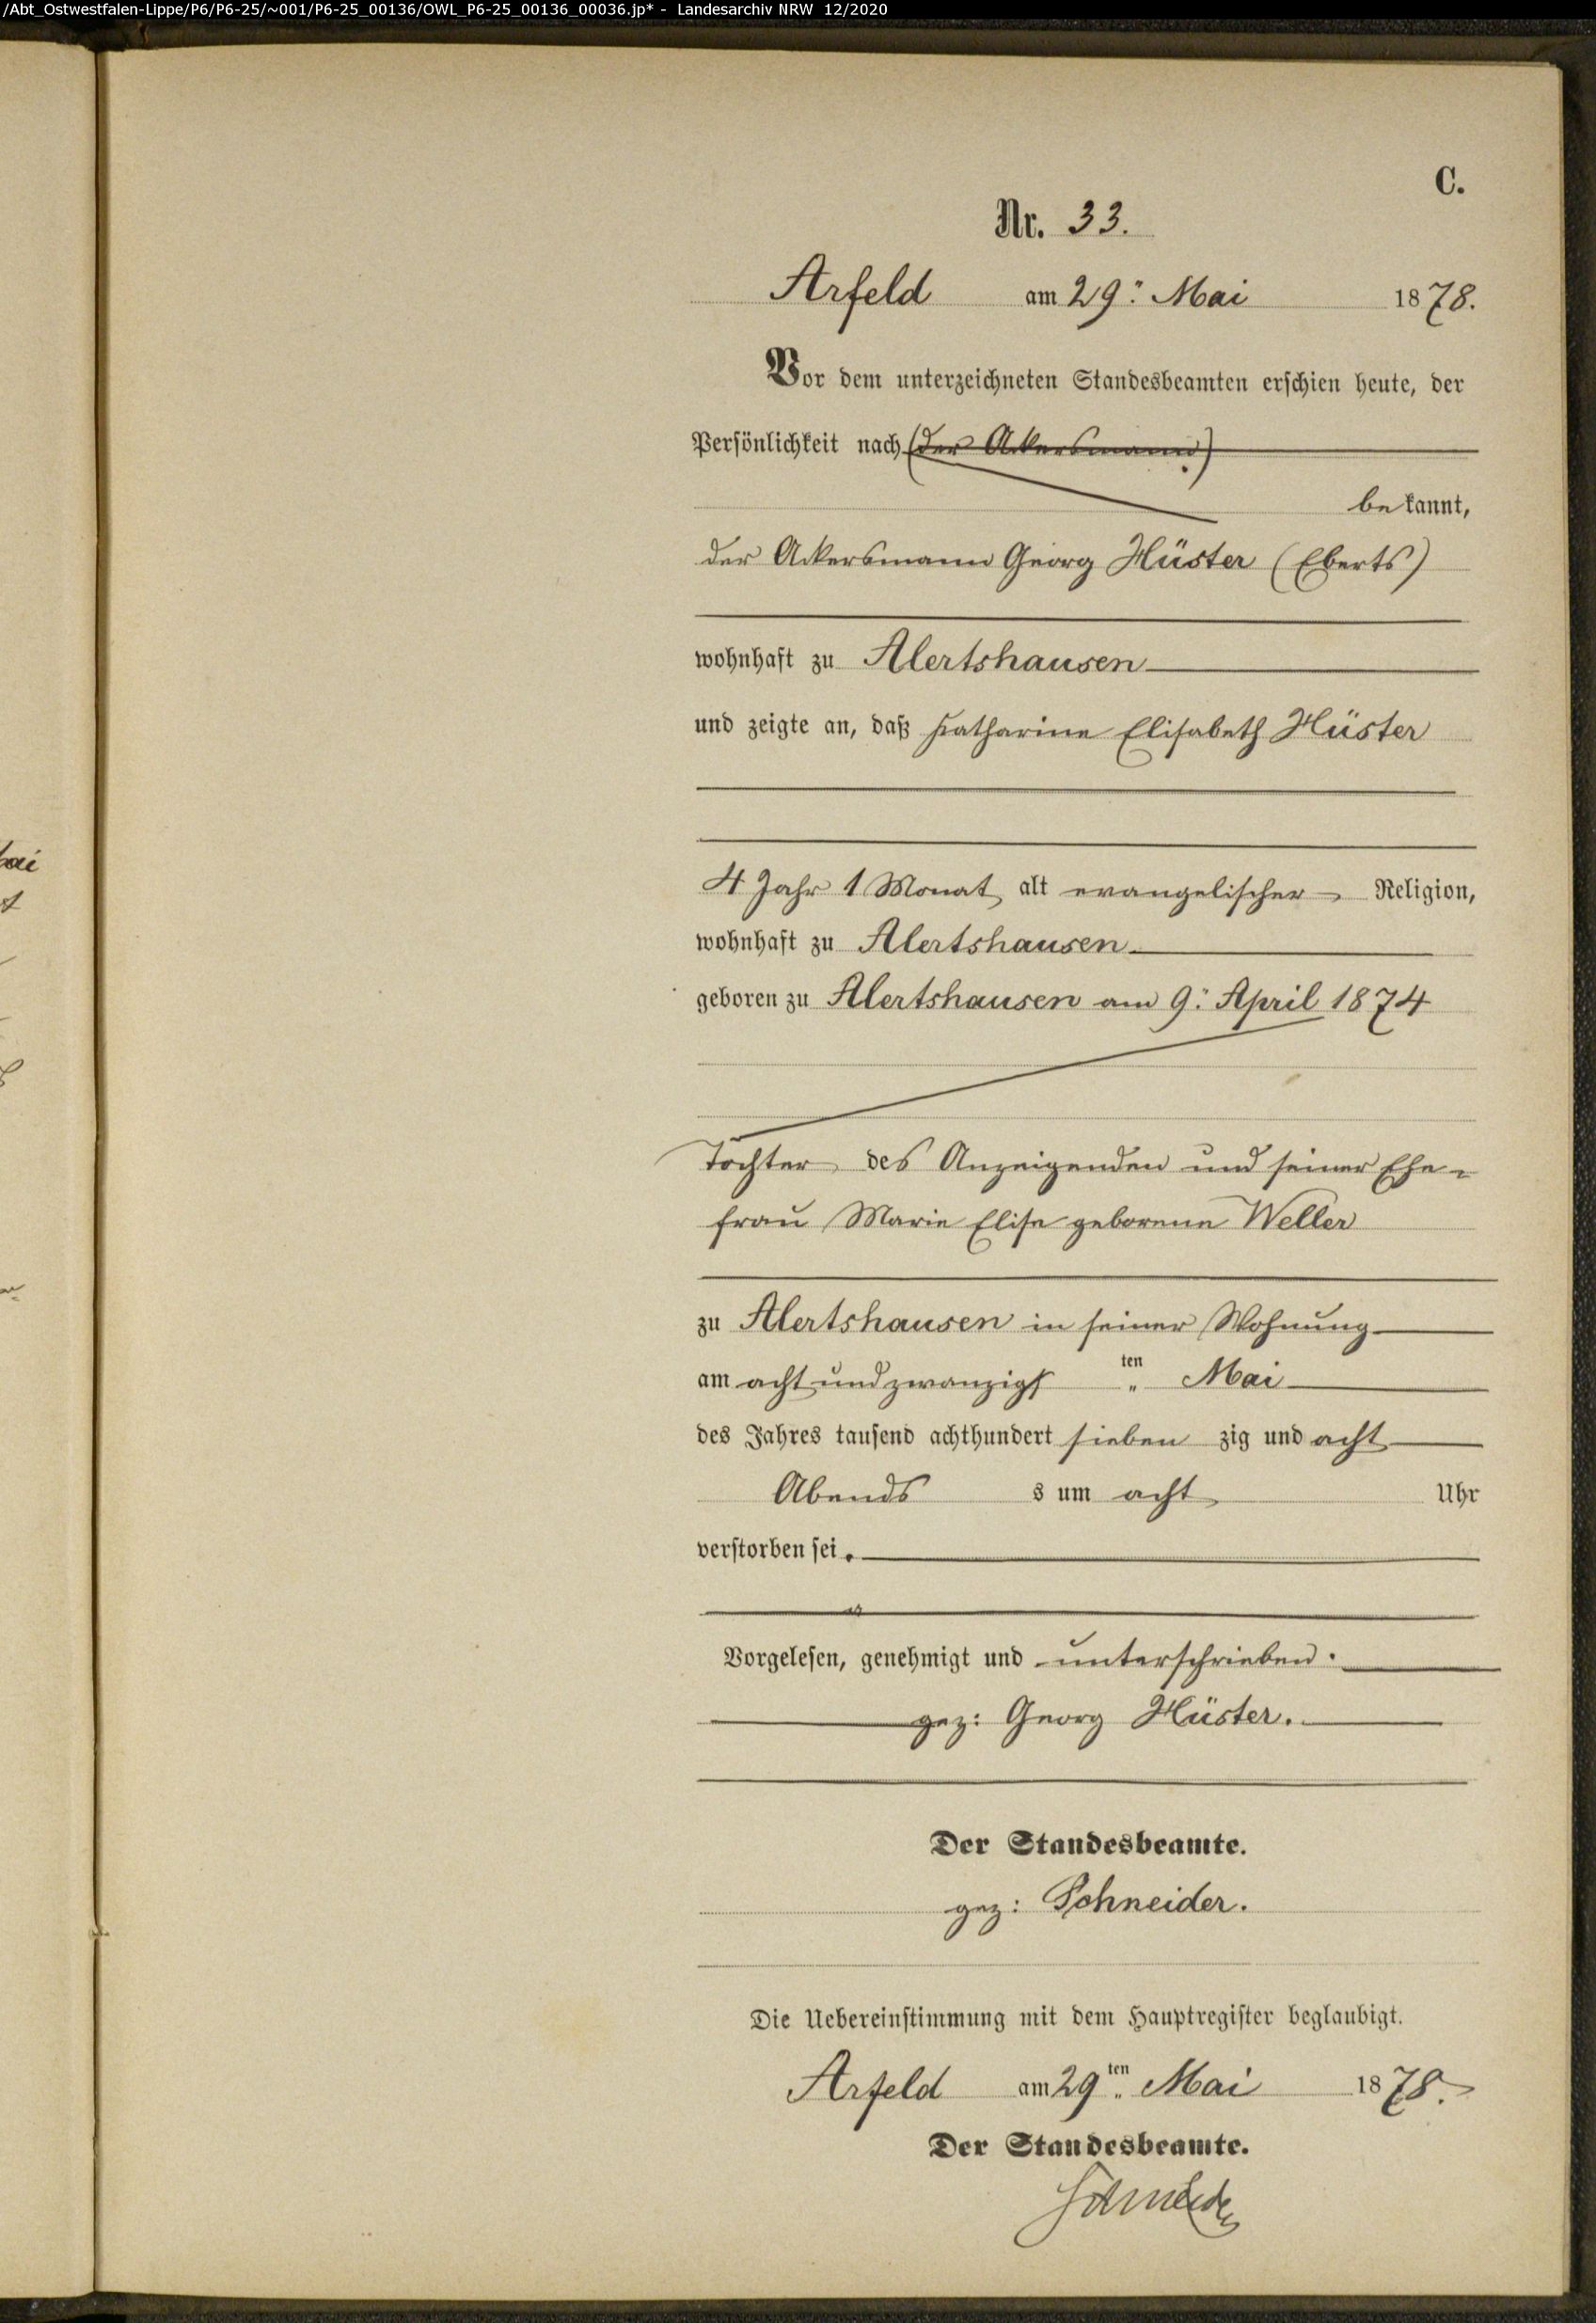 /Abt_Ostwestfalen-Lippe/P6/P6-25/~001/P6-25_00136/OWL_P6-25_00136_00036.jp* - Landesarchiv NRW 12/2020
C.
Nr. 33.
Arfeld am 29. Mai 1878.
Vor dem unterzeichneten Standesbeamten erschien heute, der
Persönlichkeit nach (der Ackersmann)
bekannt,
der Ackersmann Georg Hüster (Eberts)
wohnhaft zu Alertshausen
und zeigte an, daß Katharine Elisabeth Hüster
4 Jahr 1 Monat alt evangelischer Religion,
wohnhaft zu Alertshausen
geboren zu Alertshausen am 9. April 1874
Tochter des Anzeigenden und seiner Ehe-
frau Marie Elise geborene Weller
zu Alertshausen in seiner Wohnung
am acht und zwanzigs ten Mai
des Jahres tausend achthundert sieben zig und acht
Abends s um acht Uhr
verstorben sei.
Vorgelesen, genehmigt und unterschrieben.
gez: Georg Hüster.
Der Standesbeamte.
gez: Schneider.
Die Uebereinstimmung mit dem Hauptregister beglaubigt.
Arfeld am 29ten Mai 1878.
Der Standesbeamte.
Schneider